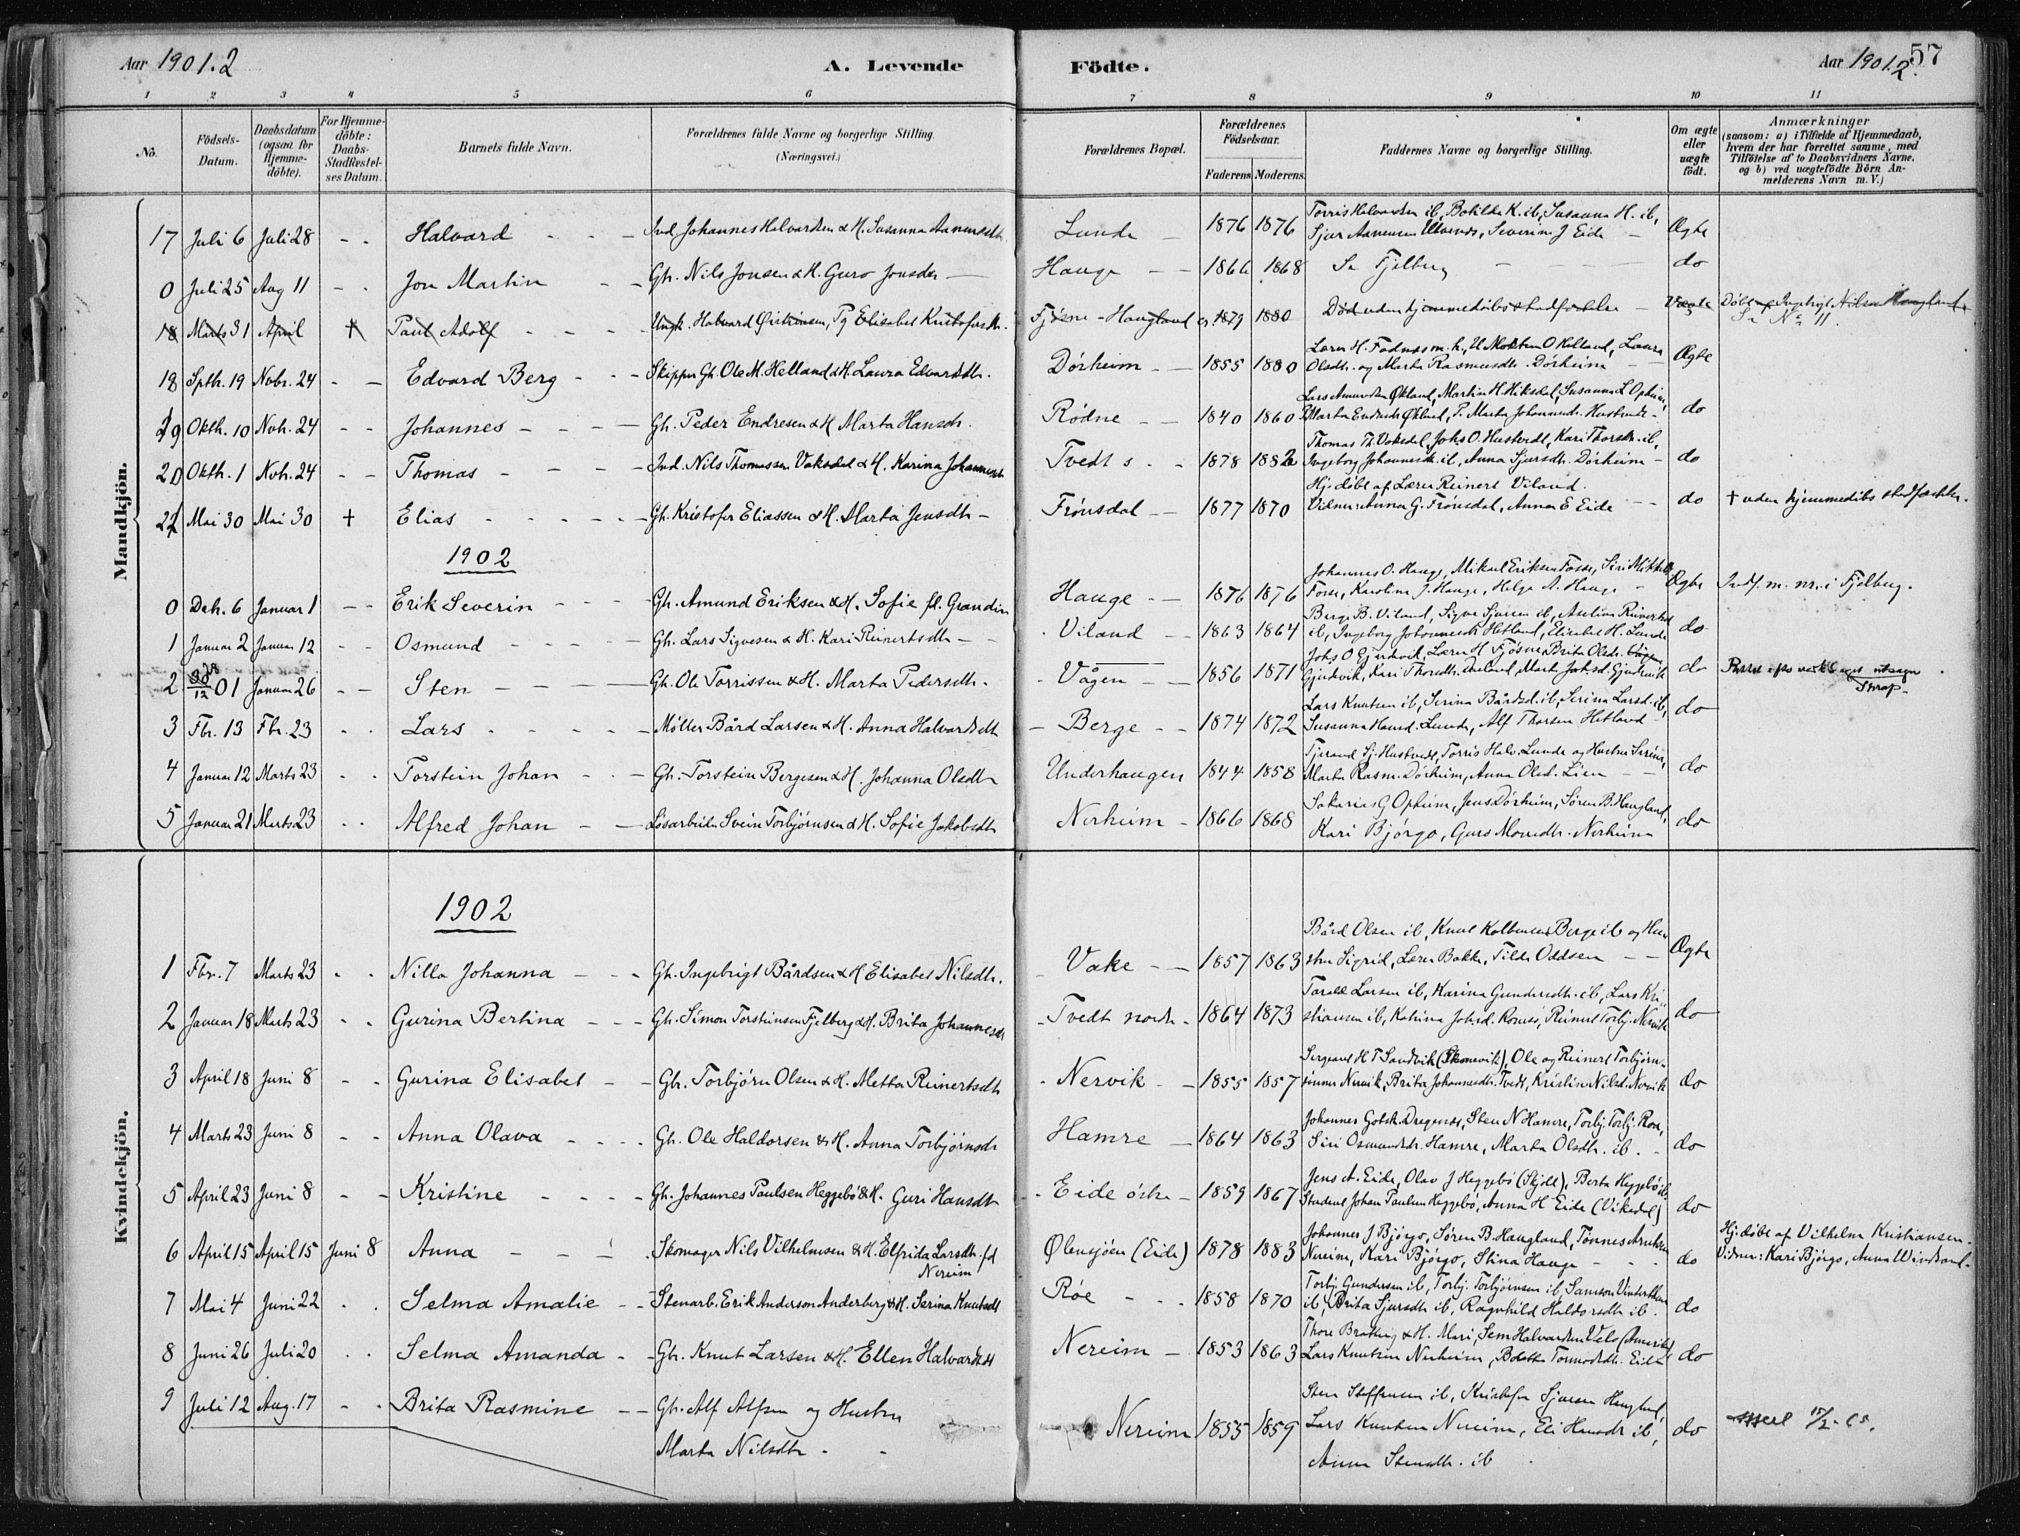 Aar 1901.2
A. Levende
Födte.
Aar 1901.2.
57
1 2 3 4 5 6 7 8 9 10 11
No.
Födsels-Datum.
Daabsdatum (ogsaa for Hjemmedöbte).
For Hjemmedöbte: Daabs-Stadfæstelses Datum.
Barnets fulde Navn.
Forældrenes fulde Navne og borgerlige Stilling. (Næringsvei.)
Forældrenes Bopæl.
Forældrenes Födselsaar.
Faderens. Moderens.
Faddernes Navne og borgerlige Stilling.
Om ægte eller uægte födt.
Anmærkninger (saasom: a) i Tilfælde af Hjemmedaab, hvem der har forrettet samme, med Tilföielse af to Daabsvidners Navne, og b) ved uægtefödte Börn Anmelderens Navn m. V.)
Mandkjön.
17 Juli 6 Juli 28 - - Halvard - - - Ind. Johannes Halvardsen & H. Susanna Aanensdtr. Lunde - 1876 1876 Torris Halvardsen ib, Botilda K. ib, Susanna H. ib, Sjur Aanensen Severin J Eide - Ægte
0 Juli 25 Aug 11 - - Jon Martin - - Gb. Nils Jonsen & H. Guro Jonsdtr - Hauge - - 1866 1868 Se Fjelberg - - - do
18 Marts 31 April † Paul Adolf - - - - Ungk. Halvard Pg Elisabet Kristofersdtr. Fjösne - Haugland 1879 1880 Död uden hjemmedåbsstadfæstelse - Uægte Döbt af Ingebrigt Nilsen Haugland. Se No 11.
18 Spth. 19 Novbr. 24 - - Edvard Berg - - - Skipper Gb. Ole M. Helland & H. Laura Edvardsdtr. Dörheim - - 1855 1880 Lærer H. Fadnes m. h., O Helland, Laura Olsdtr. og Marta Rasmusdtr. Dörheim - Ægte
19 Oktb. 10 Novb. 24 - - Johannes - - - - Gb. Peder Endresen & H Marta Hansdtr. Rödne - - 1840 1860 Lars Amundsen Ökland, Martin H. Susanna L Opheim, Marta Endresdtr Ökland, P. Marta Johannesdtr. Hustvedt - do
20 Oktb. 1 Novb. 24 - - Thomas - - - - Ind. Nils Thomassen Vaksdal & H. Karina Johannesdtr Tvedt s. - 1878 1882 Thomas Th. Vaksdal, Johs O. Hustvedt, Kari Thorsdtr. ib, Ingeborg Johannesdtr. ib, Anna Sjursdtr. Dörheim - do
21 Mai 30 Mai 30 † Elias - - - - - Gb. Kristofer Eliassen & H. Marta Jensdtr - Frönsdal - - 1877 1870 Hj. döbt af Lærer Reinert Viland. Vidner: Anna G. Frönsdal, Anna E Eide - do † uden hjemmedåbs stadfæstelse.
1902
0 Deb. 6 Januar 1 - - Erik Severin - - - Gb. Amund Eriksen & H. Sofie f. Grandin Hauge - - 1876 1876 Johannes O. Hauge, Mikael Eriksen Fosse, Siri Fosse, Karoline J. Hauge, Helga A. Hauge - Ægte Indf. m. nr. i Fjelberg.
1 Januar 2 Januar 12 - - Osmund - - - Gb. Lars Sigvesen & H. Kari Reinertsdtr - - Viland - - 1863 1864 Berge B. Viland, Sigve Sjursen ib, ib, Ingeborg Johannesdtr Hetland, Elisabet H. Lunde do
2 30/12 01 Januar 26 - - Sten - - - - Gb. Ole Torrissen & H. Marta Pedersdtr. Vågen - - 1856 1871 Johs O Gjerdevik, Lærer H Fjösne, Brita Olsdtr. Vågen, Gjerdevik, Kari Thoresdtr. Marta Johsd. Gjerdevik do
3 Fbr. 13 Fbr. 23 - - Lars - - - - - Möller Bård Larsen & H. Anna Halvardsdtr - Berge - - 1874 1872 Lars Knutsen ib, Serina Bårdsd. ib, Serina Larsd. ib, Susanna Lunde, Alf Thorsen Hetland - do
4 Januar 12 Marts 23 - - Torstein Johan - - Gb. Torstein Bergesen & H. Johanna Olsdtr Underhaugen 1844 1858 Tjerand Sj. Hustvedt, Torris Halv. Lunde og Hustru Serina, Marta Rasm. Dörheim, Anna Olsd. Lien - - do
5 Januar 21 Marts 23 - - Alfred Johan - - Lösarbeider Svein Torbjörnsen & H. Sofie Jakobsdtr Nerheim - 1866 1868 Sakarias G Opheim, Jens Dörheim, Sören B. Haugland, Kari Björgo, Guro Monsdtr. Nerheim do
Kvindekjön.
1902
1 Fbr. 7 Marts 23 - - Nilla Johanna - - - Gb. Ingebrigt Bårdsen & H Elisabet Nilsdtr. - Vake - - 1857 1863 Bård Olsen ib, Knut Kolbensen Berge ib og Hustru Sigrid, Lærer Bakke, Tilde Oddsen - - Ægte
2 Januar 18 Marts 23 - - Gurina Bertina - - - Gb. Simon Torsteinsen Fjelberg & H. Brita Johannesdtr - Tvedt nordr. - 1864 1873 Larsen ib, Karina Gundersdtr. ib, Lars Kristiansen ib, Katrina Johsd. Reinert Torbj. Nervik do
3 April 18 Juni 8 - - Gurina Elisabet - - Gb. Torbjörn Olsen & H. Metta Reinertsdtr - Nervik - - 1855 1857 Sergeant H T Sandvik (Skonevik), Ole og Reinert Torbjörnsönner Nervik, Brita Johannesdtr. Tvedt, Kristin Nilsd. Nervik do
4 Marts 23 Juni 8 - - Anna Olava - - - - Gb. Ole Haldorsen & H. Anna Torbjörnsdtr Hamre - 1864 1863 Johannes Gotsk. Dregenes, Sten N Hamre, Torbj. Torbj. Röe, Siri Osmundsdtr. Hamre, Marta Olsdtr. ib. - do
5 April 23 Juni 8 - - Kristine - - - - Gb. Johannes Paulsen Heggebö & H. Guri Hansdtr - Eide östre - 1859 1867 Jens A. Eide, Olav J Heggebö (Skjold), Berta Heggebö ib. Student Johan Paulsen Heggebö, Anna H Eide (Vikedal) do
6 April 15 April 15 Juni 8 Anna - - - Skomager Nils Vilhelmsen & H. Elfrida Larsdtr. fd Nereim Ölensjöen (Eide) 1878 1883 Johannes J Björgo, Sören B. Haugland, Tönnes Nereim, Kari Björgo, Stina Hauge - - - do Hj. döbt af Vilhelm Kristiansen. Vidner: Kari Björgo, Anna
7 Mai 4 Juni 22 - - Selma Amalie - - Stenarb. Erik Anderson Anderberg & H. Serina Knutsdtr Röe - - - 1858 1870 Torbj. Gundersen ib, Torbj. Torbjörnsen ib, Samson ib, Brita Sjursdtr ib, Ragnhild Haldorsdtr ib. do
8 Juni 26 Juli 20 - - Selma Amanda - - Gb. Knut Larsen & H. Ellen Halvardsdtr Nereim - 1853 1863 Thore & H. Mari, Sem Halvardsen (Amerika) Lars Knutsen Nerheim, Tormodsdtr. Eide do
9 Juli 12 Aug. 17 - - Brita Rasmine - - Gb. Alf Alfsen og Hustru Marta Nilsdtr - - Nereim 1855 1859 Sten Steffensen ib, Kristofer Sjursen Haugland, Lars Knutsen Nereim, Eli Hansdtr ib, Anna Stensdtr. ib do 15/2-